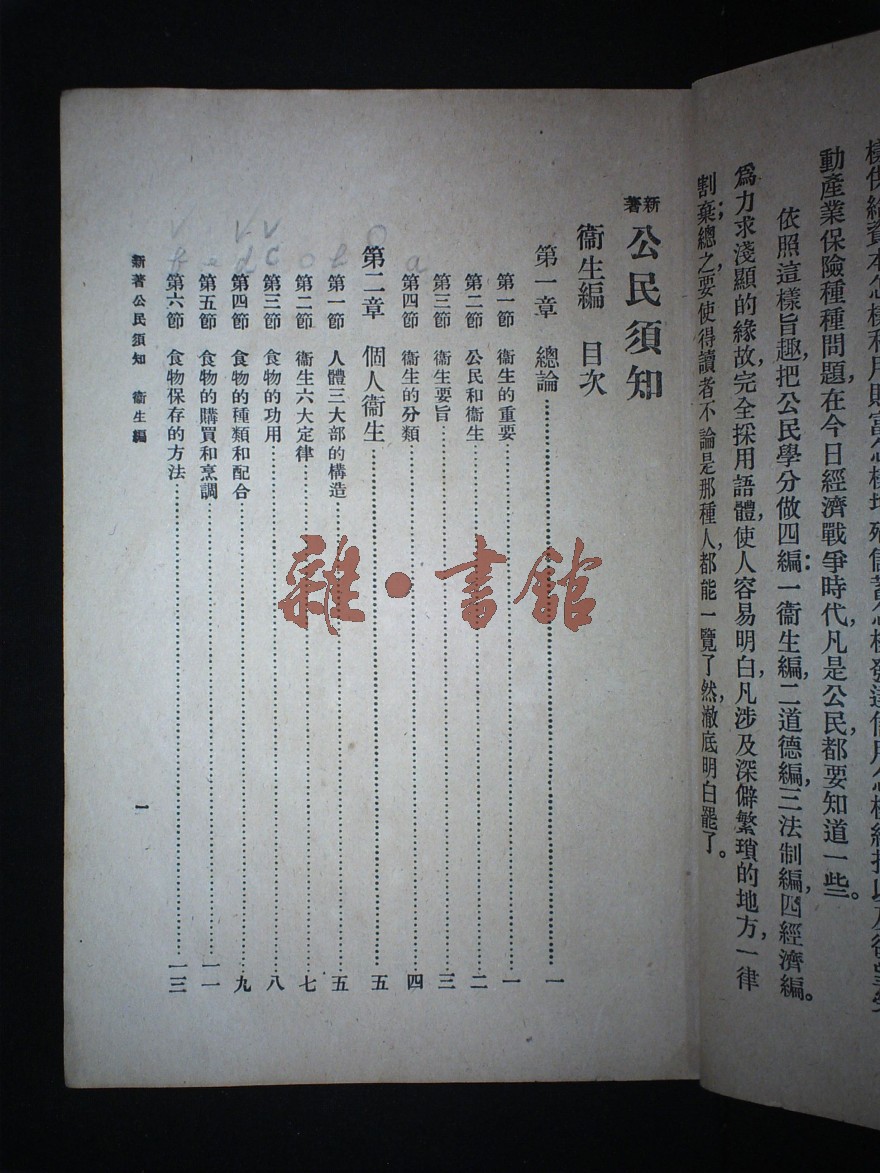 動產業保險種種問題,在今日經濟戰爭時代,凡是公民都要知道一些。
依照這樣旨趣,把公民學分做四編:一衞生編,二道德編,三法制編,四經濟編。
爲力求淺顯的緣故,完全採用語體,使人容易明白,凡涉及深僻繁瑣的地方,一律
割棄;總之,要使得讀者不論是那種人,都能一覽了然,澈底明白罷了。
新著 公民須知
衞生編 目次
第一章 總論 一
第一節 衞生的重要 一
第二節 公民和衞生 二
第三節 衞生要旨 三
第四節 衞生的分類 四
第二章 個人衞生 五
第一節 人體三大部的構造 五
第二節 衞生六大定律 七
第三節 食物的功用 八
第四節 食物的種類和配合 九
第五節 食物的購買和烹調 一一
第六節 食物保存的方法 一三
新著公民須知 衞生編
一
雜·書館